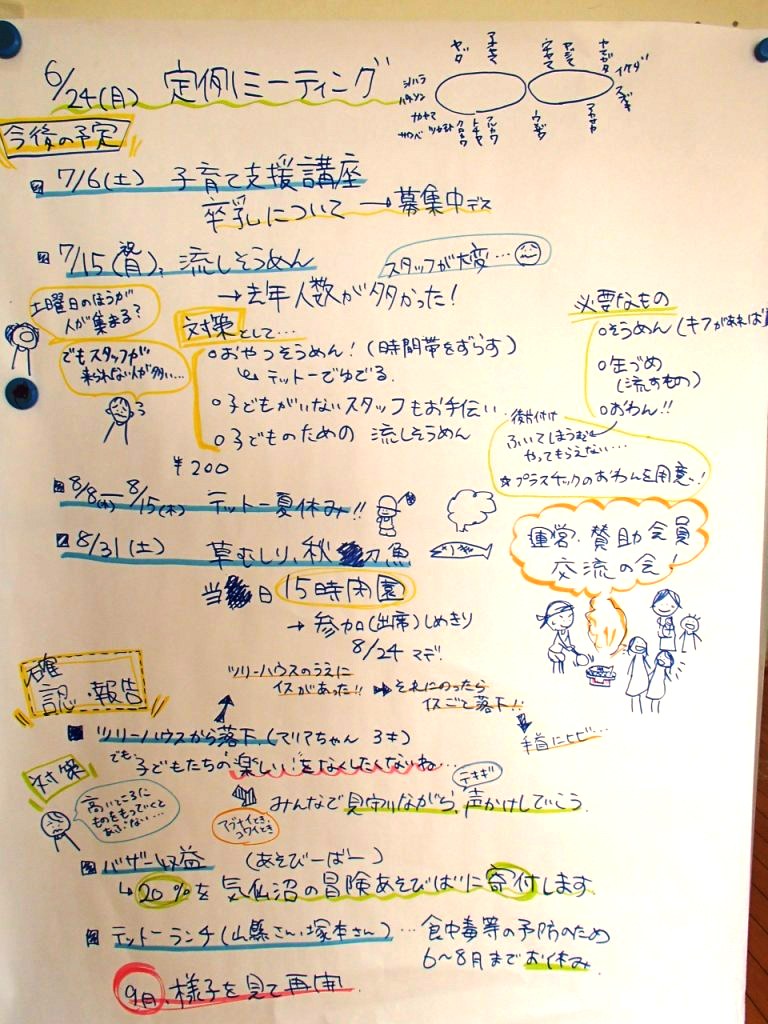 6/24(月) 定例ミーティング
今後の予定
7/6(土) 子育て支援講座
卒乳について →募集中デス
7/15(月)祝, 流しそうめん
スタッフが大変…
→去年人数が多かった!
土曜日のほうが
人が集まる?
でもスタッフが
来られない人が多い…
対策として…
○おやつそうめん!(時間帯をずらす)
↳テットーでゆでる.
○子どもがいないスタッフもお手伝い
○子どものための 流しそうめん
¥200
必要なもの
○そうめん(キフがあれば
○缶づめ
(流すもの)
○おわん!!
後片付け
ふいてしまうむ
やってもらえない…
☆プラスチックのおわんを用意!
8/8(木)―8/15(木) テットー夏休み!!
8/31(土) 草むしり,秋刀魚
当日 15時閉園
→参加(出席)しめきり
8/24 マデ!
運営.賛助会員
交流の会!
確認・報告
ツリーハウスのうえに
イスがあった!! ➡それにのったら
イスごと落下!!
手首にヒビ…
ツリーハウスから落下(マリアちゃん 3才)
でも、子どもたちの楽しい!をなくしたくないね…
対策
高いところに
ものをもっていくと
あぶない…
アブナイとき、
コワイとき
みんなで見守りながら,声かけしていこう.
テキギ
バザー収益 (あそびーばー)
↳20%を気仙沼の冒険あそびばに寄付します
テットーランチ(山縣さん,塚本さん)…食中毒等の予防のため
6〜8月までお休み
9月,様子を見て再開